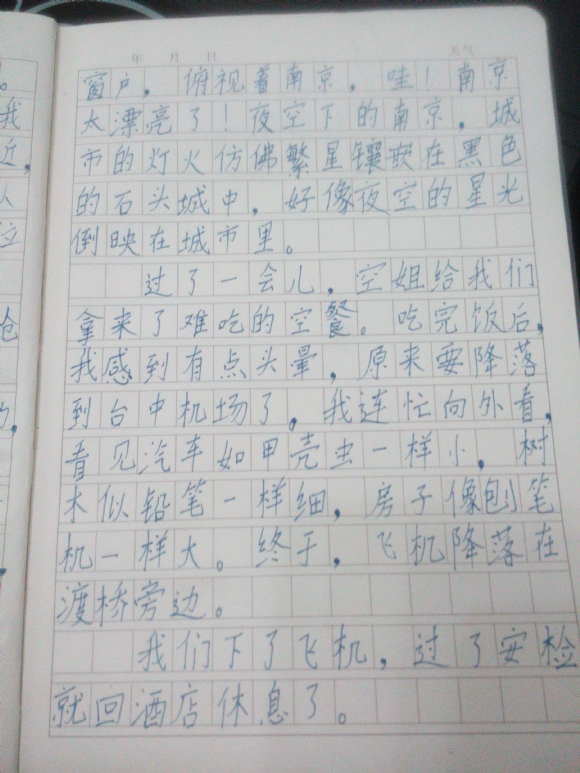 年 月 日 天气
窗户，俯视着南京，哇！南京
太漂亮了！夜空下的南京，城
市的灯火仿佛繁星镶嵌在黑色
的石头城中，好像夜空的星光
倒映在城市里。
过了一会儿，空姐给我们
拿来了难吃的空餐。吃完饭后，
我感到有点头晕，原来要降落
到台中机场了，我连忙向外看，
看见汽车如甲壳虫一样小，树
木似铅笔一样细，房子像刨笔
机一样大。终于，飞机降落在
渡桥旁边。
我们下了飞机，过了安检
就回酒店休息了。